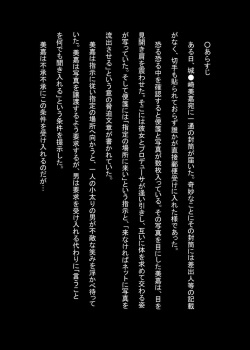 〇あらすじ
ある日、城●崎美嘉宛に一通の封筒が届いた。奇妙なことにその封筒には差出人等の記載
がなく、切手も貼られておらず誰かが直接郵便受けに入れた様であった。
恐る恐る中を確認すると便箋と写真が数枚入っている。その写真を目にした美嘉は、目を
見開き肩を震わせた。そこには彼女とプロデューサが逢い引きし、互いに体を求めて交わる姿
が写っていた。そして便箋には「指定の場所に来い」という指示と、「来なければネットに写真を
流出させる」という意の脅迫文章が書かれていた。
美嘉は指示に従い指定の場所へ向かうと、一人の小太りの男が不敵な笑みを浮かべ待って
いた。美嘉は写真を譲渡するよう要求するが、男は要求を受け入れる代わりに、「言うこと
を何でも聞き入れる」という条件を提示した。
美嘉は不承不承にこの条件を受け入れるのだが…